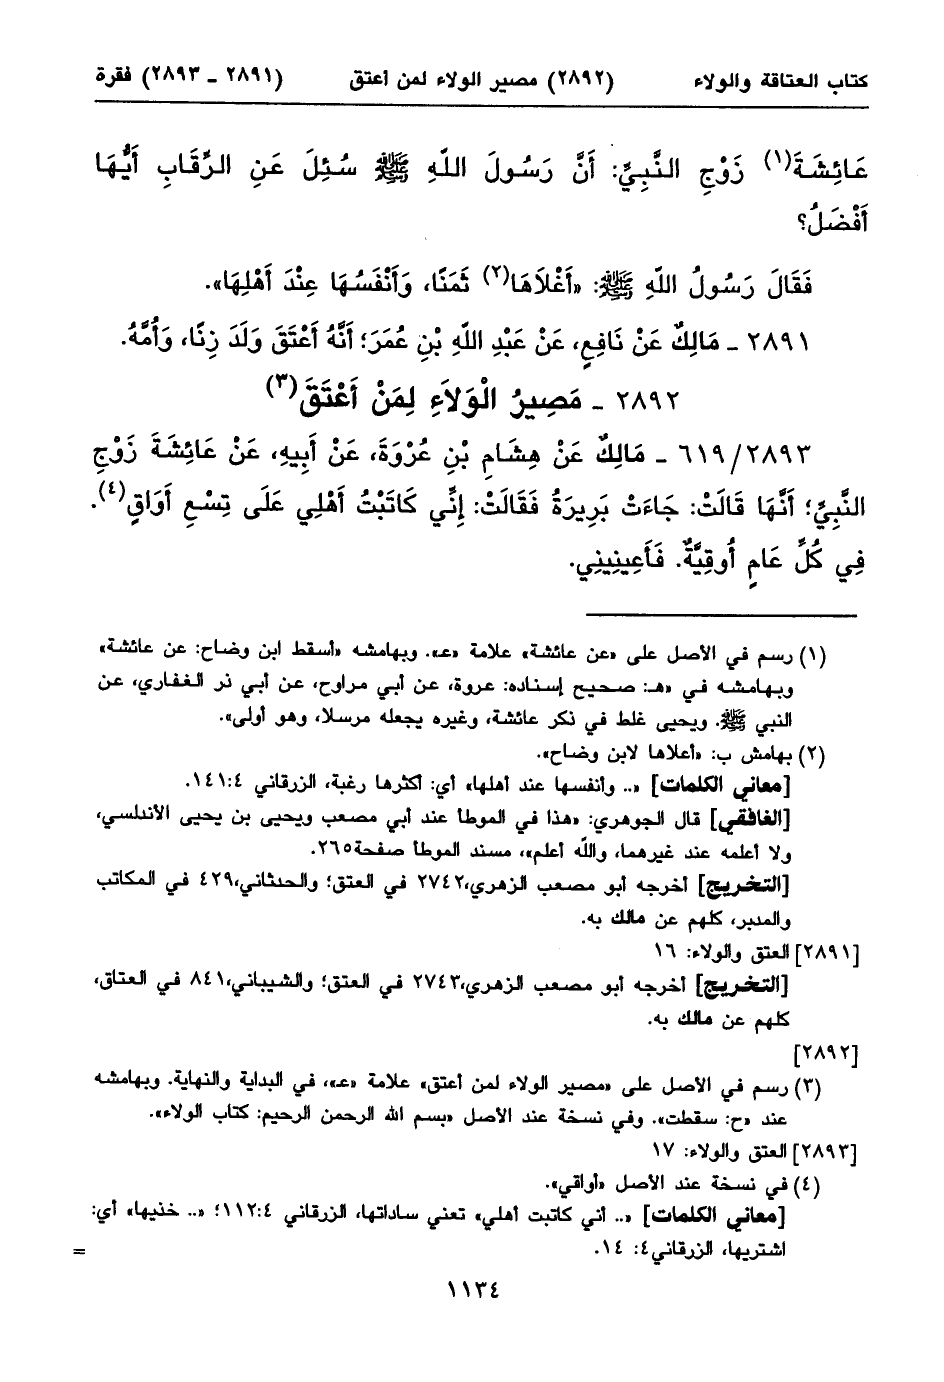 كتاب العتاقة والولاء (٢٨٩٢) مصير الولاء لمن أعتق (٢٨٩١ ـ ٢٨٩٣) فقرة
عَائِشَةَ(١) زَوْجِ النَّبِيِّ: أَنَّ رَسُولَ اللهِ ﷺ سُئِلَ عَنِ الرِّقَابِ أَيُّهَا
أَفْضَلُ؟
فَقَالَ رَسُولُ اللهِ ﷺ: «أَغْلاَهَا(٢) ثَمَنًا، وَأَنْفَسُهَا عِنْدَ أَهْلِهَا».
٢٨٩١ ـ مَالِكٌ عَنْ نَافِعٍ، عَنْ عَبْدِ اللهِ بْنِ عُمَرَ؛ أَنَّهُ أَعْتَقَ وَلَدَ زِنًا، وَأُمَّهُ.
٢٨٩٢ ـ مَصِيرُ الْوَلاَءِ لِمَنْ أَعْتَقَ(٣)
٦١٩/٢٨٩٣ ـ مَالِكٌ عَنْ هِشَامِ بْنِ عُرْوَةَ، عَنْ أَبِيهِ، عَنْ عَائِشَةَ زَوْجِ
النَّبِيِّ؛ أَنَّهَا قَالَتْ: جَاءَتْ بَرِيرَةُ فَقَالَتْ: إِنِّي كَاتَبْتُ أَهْلِي عَلَى تِسْعِ أَوَاقٍ(٤).
فِي كُلِّ عَامٍ أُوقِيَّةٌ. فَأَعِينِينِي.
(١) رسم في الأصل على «عن عائشة» علامة «عـ». وبهامشه «أسقط ابن وضاح: عن عائشة»
وبهامشه في «هـ: صحيح إسناده: عروة، عن أبي مراوح، عن أبي ذر الغفاري، عن
النبي ﷺ. ويحيى غلط في ذكر عائشة، وغيره يجعله مرسلا، وهو أولى».
(٢) بهامش ب: «أعلاها لابن وضاح».
[معاني الكلمات] «.. وأنفسها عند أهلها» أي: أكثرها رغبة، الزرقاني ٤:١٤١.
[الغافقي] قال الجوهري: «هذا في الموطأ عند أبي مصعب ويحيى بن يحيى الأندلسي،
ولا أعلمه عند غيرهما، والله أعلم»، مسند الموطأ صفحة٢٦٥.
[التخريج] أخرجه أبو مصعب الزهري،٢٧٤٢ في العتق؛ والحدثاني،٤٢٩ في المكاتب
والمدبر، كلهم عن مالك به.
[٢٨٩١] العتق والولاء: ١٦
[التخريج] أخرجه أبو مصعب الزهري،٢٧٤٣ في العتق؛ والشيباني،٨٤١ في العتاق،
كلهم عن مالك به.
[٢٨٩٢]
(٣) رسم في الأصل على «مصير الولاء لمن أعتق» علامة «عـ»، في البداية والنهاية. وبهامشه
عند «ح: سقطت». وفي نسخة عند الأصل «بسم الله الرحمن الرحيم: كتاب الولاء».
[٢٨٩٣] العتق والولاء: ١٧
(٤) في نسخة عند الأصل «أواقي».
[معاني الكلمات] «.. أني كاتبت أهلي» تعني ساداتها، الزرقاني ٤:١١٢؛ «.. خذيها» أي:
اشتريها، الزرقاني٤: ١٤. =
١١٣٤